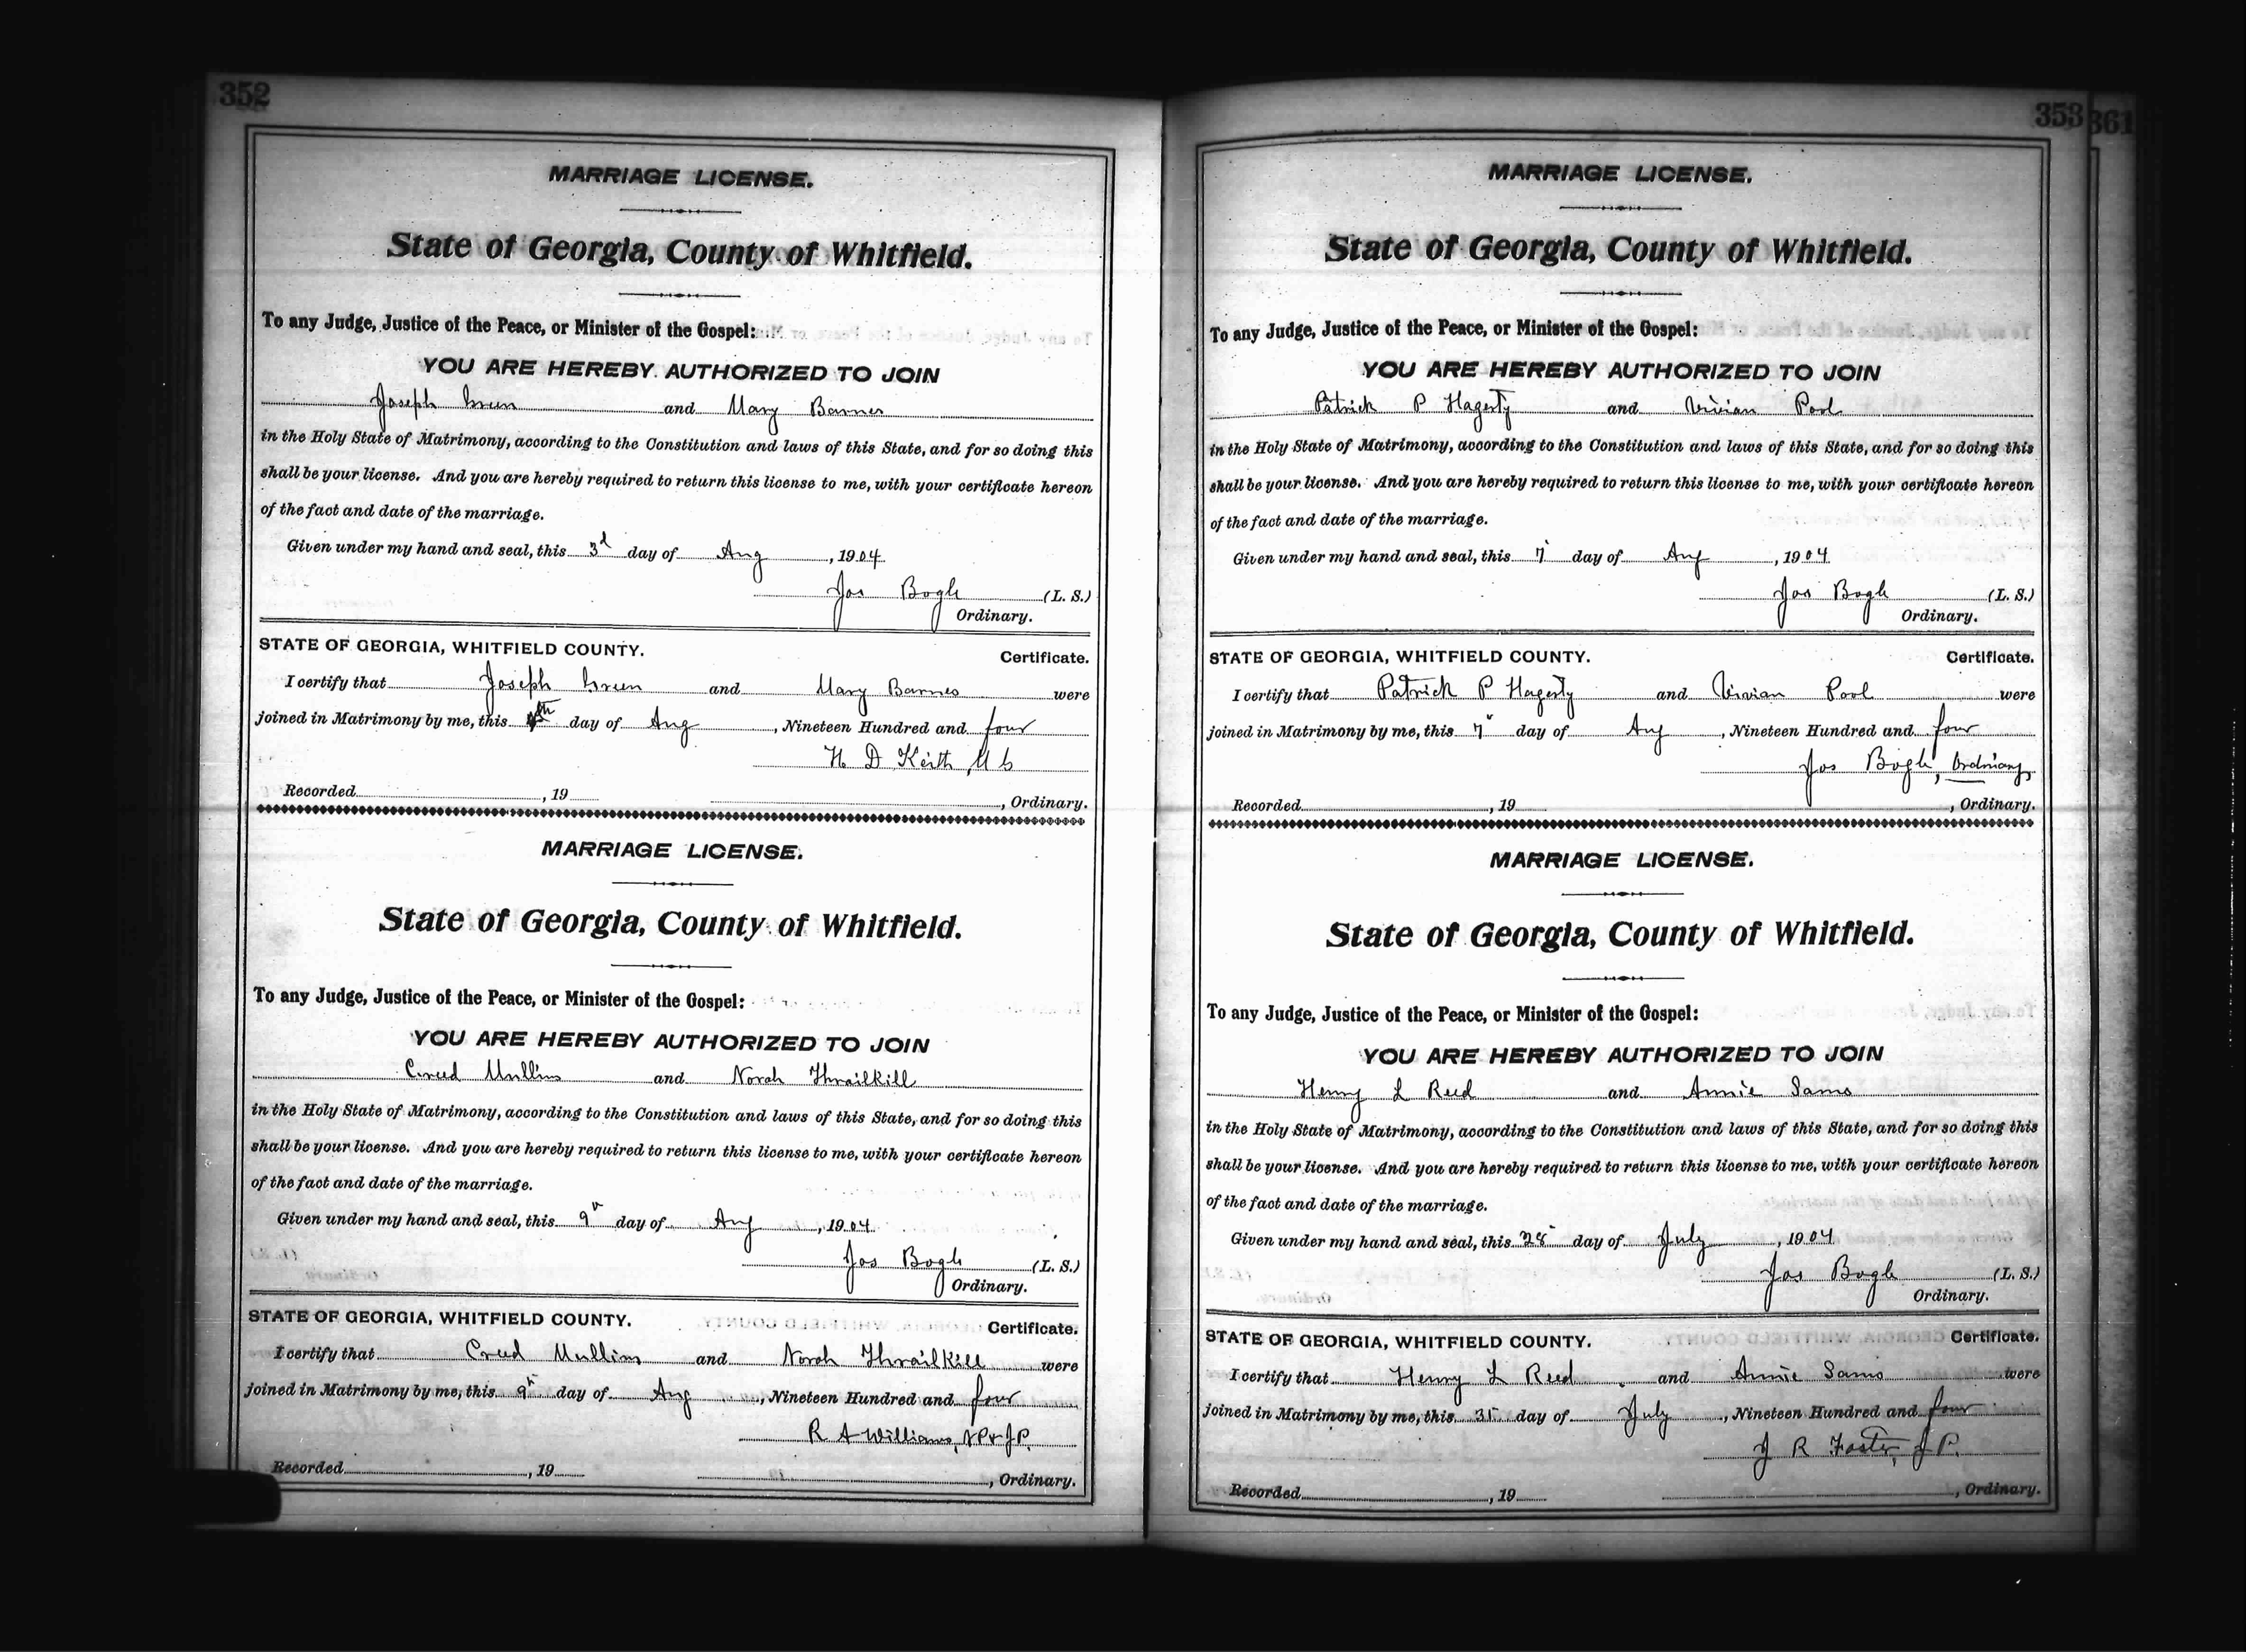 352
MARRIAGE LICENSE.
State of Georgia, County of Whitfield.
To any Judge, Justice of the Peace, or Minister of the Gospel:
YOU ARE HEREBY AUTHORIZED TO JOIN
Joseph Green and Mary Barnes
in the Holy State of Matrimony, according to the Constitution and laws of this State, and for so doing this
shall be your license. And you are hereby required to return this license to me, with your certificate hereon
of the fact and date of the marriage.
Given under my hand and seal, this 3d day of Aug, 1904
Jos Bogle (L. S.)
Ordinary.
STATE OF GEORGIA, WHITFIELD COUNTY.
Certificate.
I certify that Joseph Green and Mary Barnes were
joined in Matrimony by me, this day of Aug, Nineteen Hundred and four
H. D Keith, M G
Recorded , 19 , Ordinary.
MARRIAGE LICENSE.
State of Georgia, County of Whitfield.
To any Judge, Justice of the Peace, or Minister of the Gospel:
YOU ARE HEREBY AUTHORIZED TO JOIN
Creed Mullins and Norah Thrailkill
in the Holy State of Matrimony, according to the Constitution and laws of this State, and for so doing this
shall be your license. And you are hereby required to return this license to me, with your certificate hereon
of the fact and date of the marriage.
Given under my hand and seal, this 9th day of Aug, 1904
Jos Bogle (L. S.)
Ordinary.
STATE OF GEORGIA, WHITFIELD COUNTY.
Certificate.
I certify that Creed Mullins and Norah Thrailkill were
joined in Matrimony by me, this 9th day of Aug, Nineteen Hundred and four
R A Williams, NP & JP.
Recorded , 19 , Ordinary.
353
361
MARRIAGE LICENSE.
State of Georgia, County of Whitfield.
To any Judge, Justice of the Peace, or Minister of the Gospel:
YOU ARE HEREBY AUTHORIZED TO JOIN
Patrick P Hagerty and Vivian Pool
in the Holy State of Matrimony, according to the Constitution and laws of this State, and for so doing this
shall be your license. And you are hereby required to return this license to me, with your certificate hereon
of the fact and date of the marriage.
Given under my hand and seal, this 7 day of Aug, 1904
Jos Bogle (L. S.)
Ordinary.
STATE OF GEORGIA, WHITFIELD COUNTY.
Certificate.
I certify that Patrick P Hagerty and Vivian Pool were
joined in Matrimony by me, this 7 day of Aug, Nineteen Hundred and four
Jos Bogle, Ordinary
Recorded , 19 , Ordinary.
MARRIAGE LICENSE.
State of Georgia, County of Whitfield.
To any Judge, Justice of the Peace, or Minister of the Gospel:
YOU ARE HEREBY AUTHORIZED TO JOIN
Henry L Reed and Annie Sams
in the Holy State of Matrimony, according to the Constitution and laws of this State, and for so doing this
shall be your license. And you are hereby required to return this license to me, with your certificate hereon
of the fact and date of the marriage.
Given under my hand and seal, this 28 day of July, 1904
Jos Bogle (L. S.)
Ordinary.
STATE OF GEORGIA, WHITFIELD COUNTY.
Certificate.
I certify that Henry L Reed and Annie Sams were
joined in Matrimony by me, this 31 day of July, Nineteen Hundred and four
J R Foster, J P.
Recorded , 19 , Ordinary.